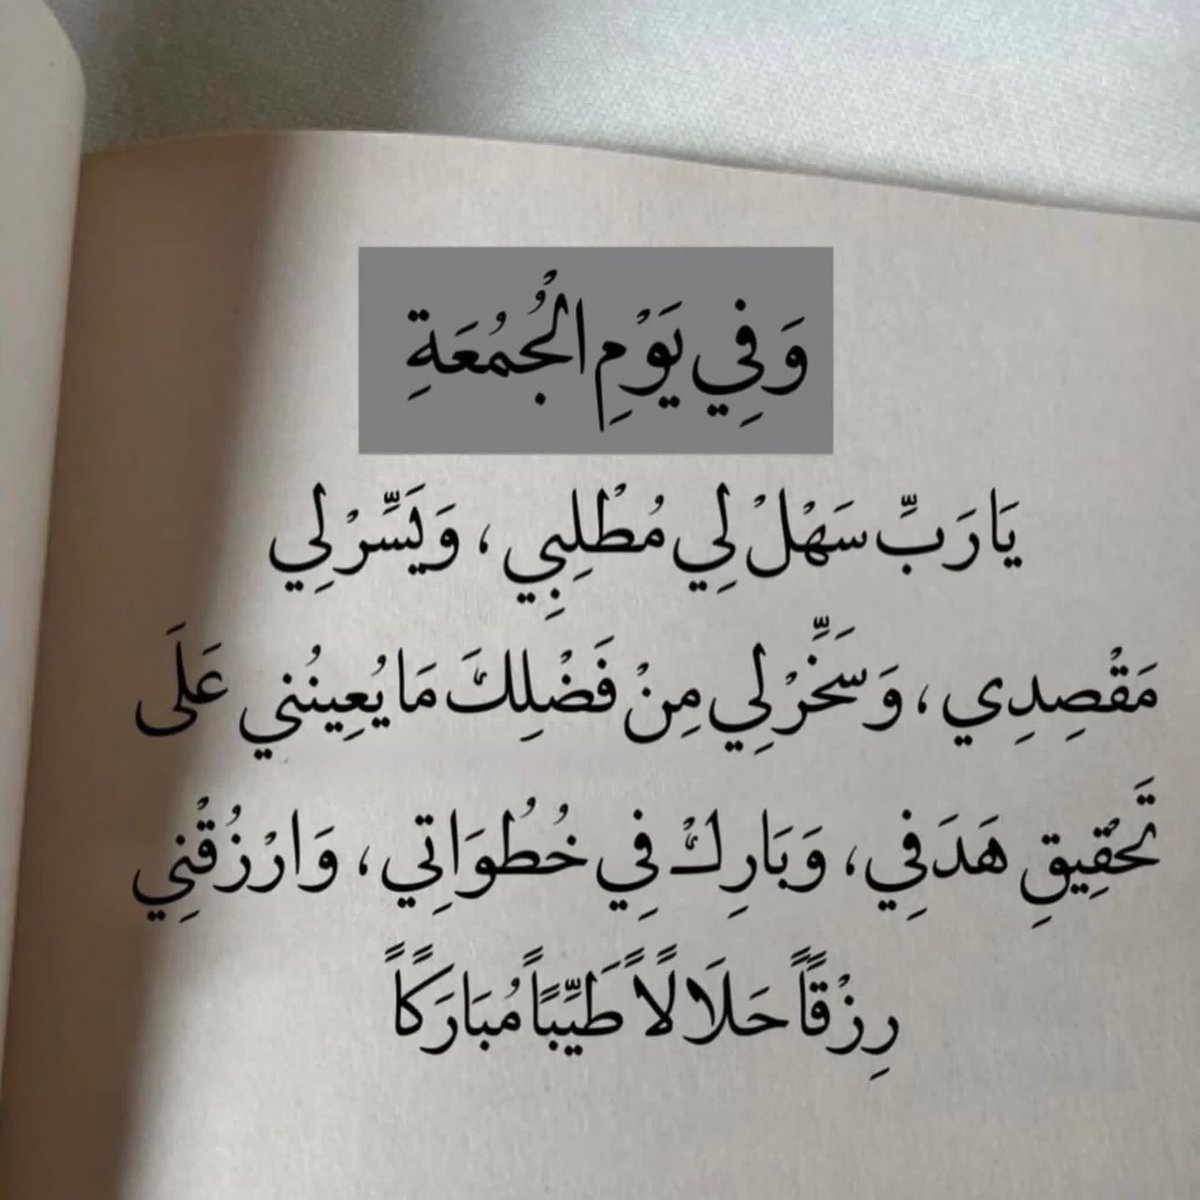 وَفِي يَوْمِ الْجُمُعَةِ
يَا رَبِّ سَهْلْ لِي مُطْلِبِي ، وَيَسِّرْ لِي
مَقْصِدِي ، وَسَخِّرْ لِي مِنْ فَضْلِكَ مَا يُعِينُنِي عَلَى
تَحْقِيقِ هَدَفِي ، وَبَارِكْ فِي خُطُوَاتِي ، وَارْزُقْنِي
رِزْقًاً حَلَالًاً طَيِّبًاً مُبَارَكًاً